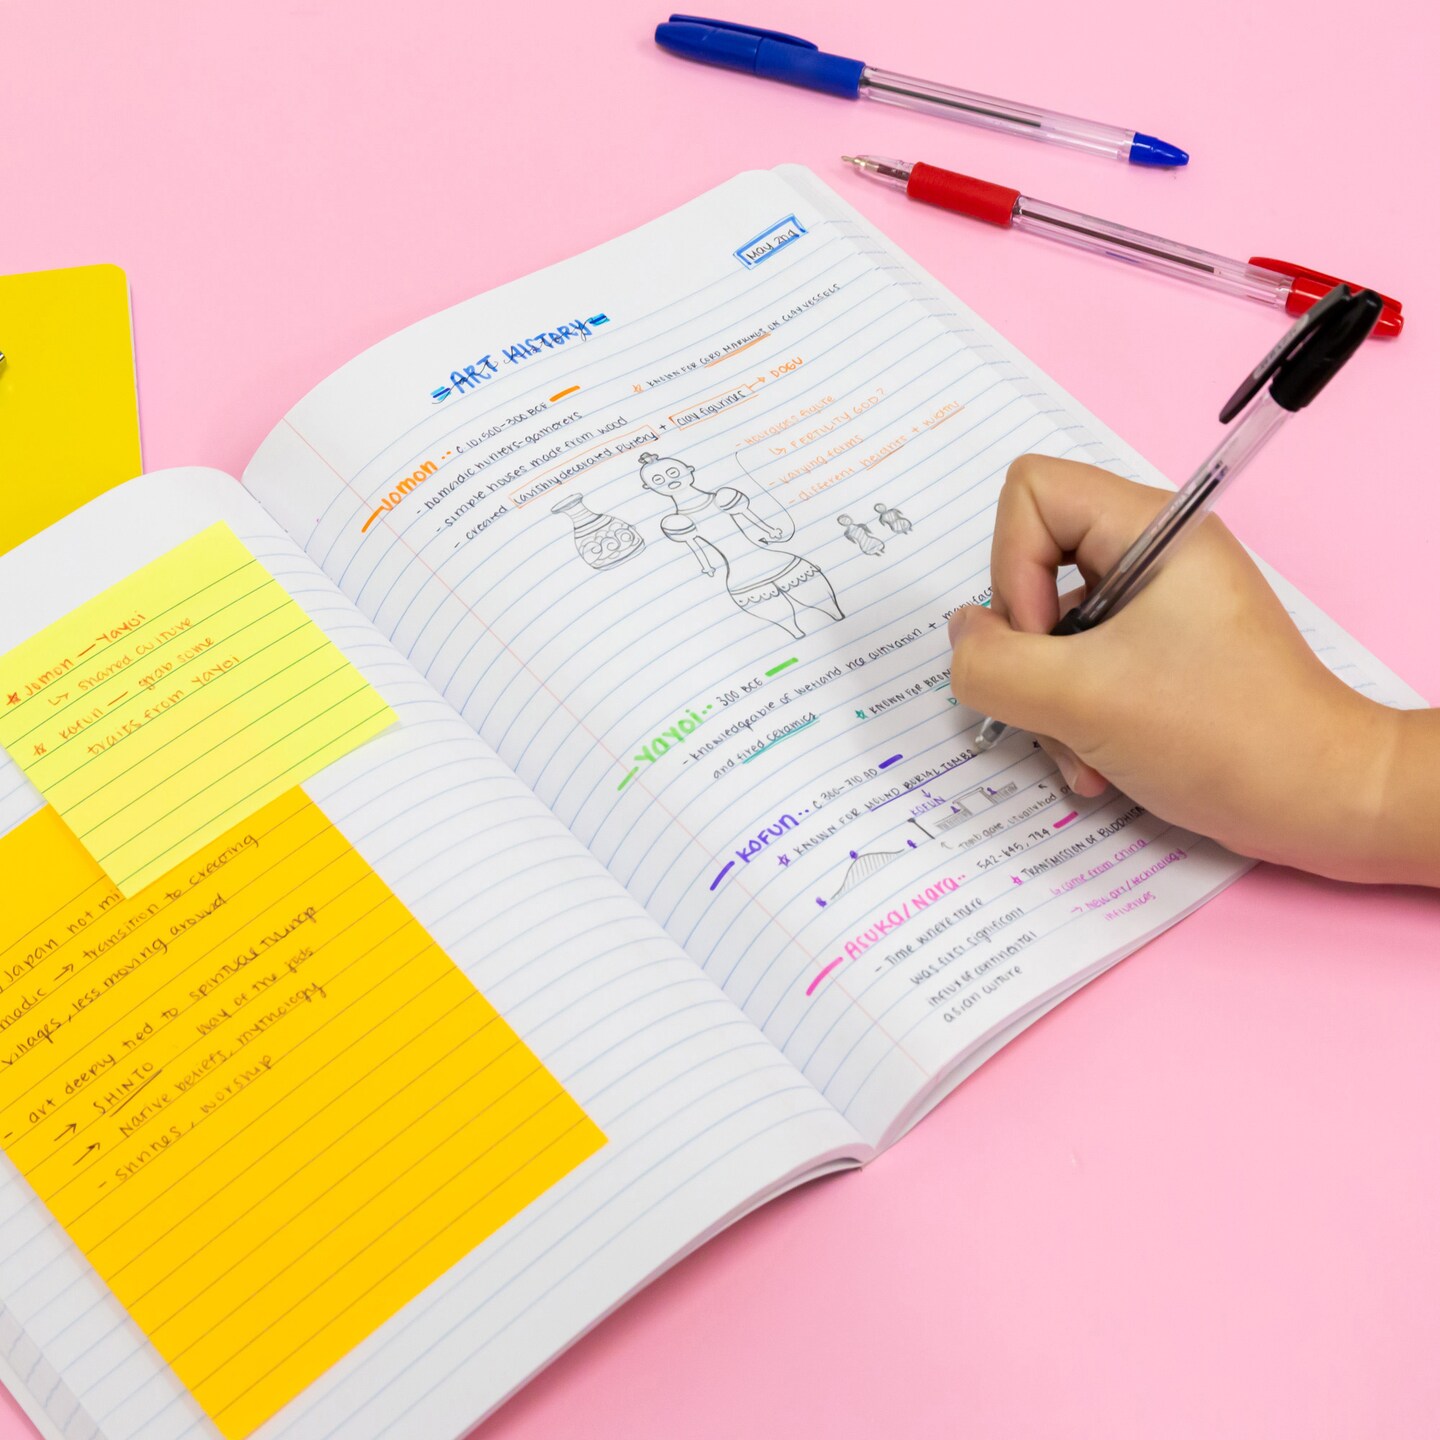 * Jomon — Yayoi
↳ shared culture
* Kofun — grab some
traits from Yayoi
Japan not
→ transition to creating
villages, less moving around
- art deeply tied to spiritual
→ SHINTO way of the gods
→ Native beliefs, mythology
- shrines, worship
May 2nd
=ART HISTORY=
Jomon·· C 10,500-300 BCE
- nomadic hunters-gatherers
- simple houses made from wood
- created lavishly decorated pottery + clay figurines → DOGU
* KNOWN FOR CORD MARKINGS ON CLAY VESSELS
- hourglass figure
↳ FERTILITY GOD?
- varying forms
- different heights + width
Yayoi·· 300 BCE
- knowledgeable of wetland rice cultivation +
and fired ceramics
* KNOWN FOR
KOFUN·· C 300-710 AD
* KNOWN FOR MOUND BURIAL TOMBS
↓
KOFUN
usually had
Asuka/Nara·· 542-645, 794
- Time where there
was first significant
influx of continental
asian culture
* TRANSMISSION OF BUDDHISM
↳ came from China
→ New art/technology
influences